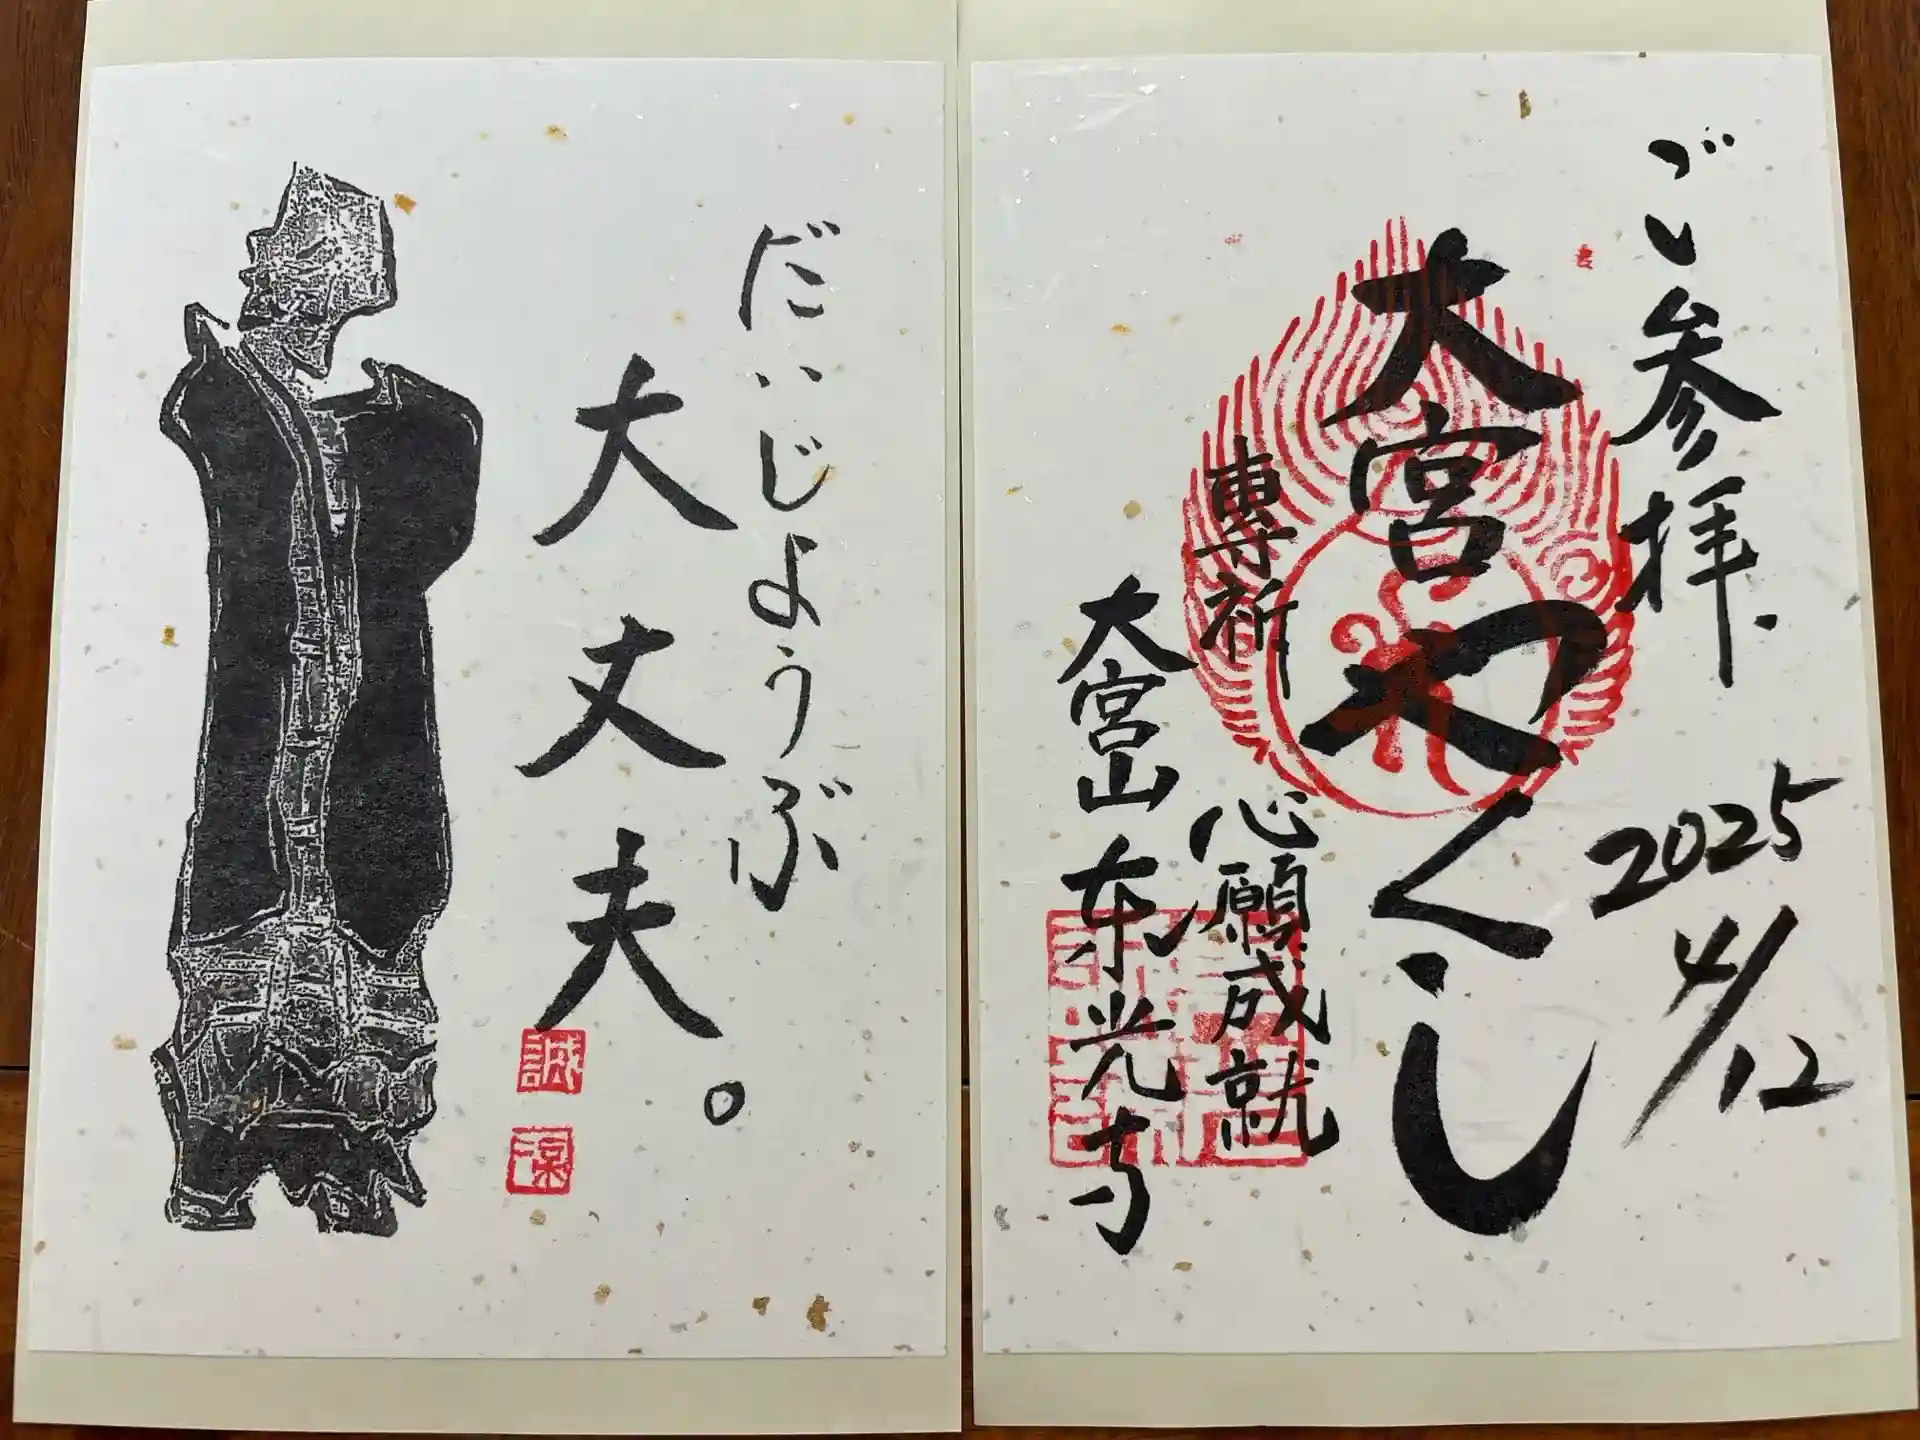 ご参拝.
2025
4/12
大宮やくし
專祈 心願成就
大宮山 東光寺
だいじょうぶ
大丈夫。
誠